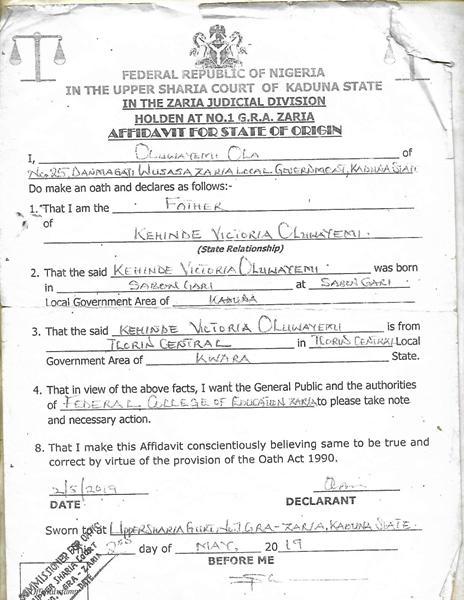 FEDERAL REPUBLIC OF NIGERIA
IN THE UPPER SHARIA COURT OF KADUNA STATE
IN THE ZARIA JUDICIAL DIVISION
HOLDEN AT NO.1 G.R.A. ZARIA
AFFIDAVIT FOR STATE OF ORIGIN
I, OLUWAYEMI OLA of
No. 25, DANMAGAJI WUSASA ZARIA LOCAL GOVERNMENT, KADUNA STATE
Do make an oath and declares as follows:-
1. "That I am the FATHER
of
KEHINDE VICTORIA OLUWAYEMI.
(State Relationship)
2. That the said KEHINDE VICTORIA OLUWAYEMI. was born
in SABON GARI at SABON GARI
Local Government Area of KADUNA
3. That the said KEHINDE VICTORIA OLUWAYEMI is from
ILORIN CENTRAL in ILORIN CENTRAL Local
Government Area of KWARA State.
4. That in view of the above facts, I want the General Public and the authorities
of FEDERAL COLLEGE OF EDUCATION ZARIA to please take note
and necessary action.
8. That I make this Affidavit conscientiously believing same to be true and
correct by virtue of the provision of the Oath Act 1990.
2/5/2019
DATE DECLARANT
Sworn to at UPPER SHARIA COURT No.1 GRA-ZARIA, KADUNA STATE
This 2nd day of MAY, 2019
BEFORE ME
COMMISSIONER FOR OATHS
UPPER SHARIA COURT
GRA - ZARIA
DATE